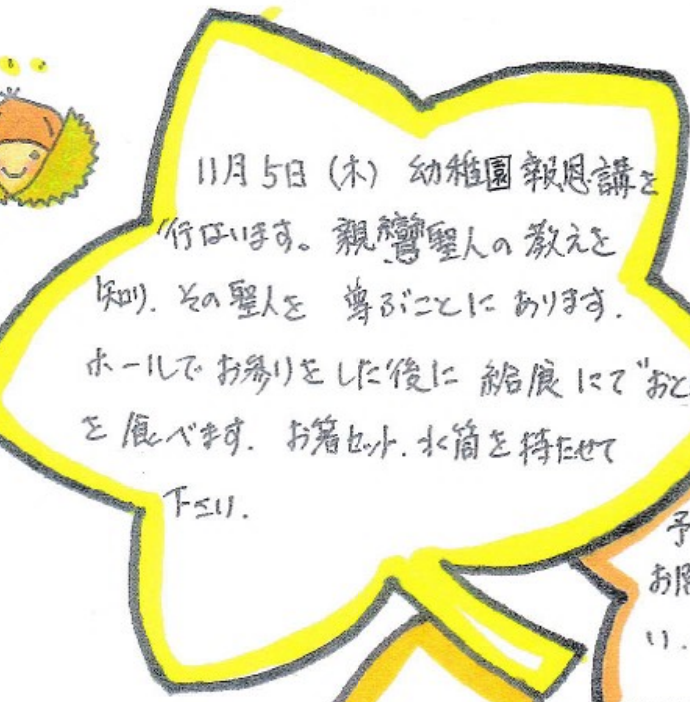 11月5日（木） 幼稚園報恩講を
行ないます。親鸞聖人の教えを
知り、その聖人を 尊ぶことにあります。
ホールでお参りをした後に 給食にて"おと
を食べます。お箸セット、水筒を持たせて
下さい。
予
い．